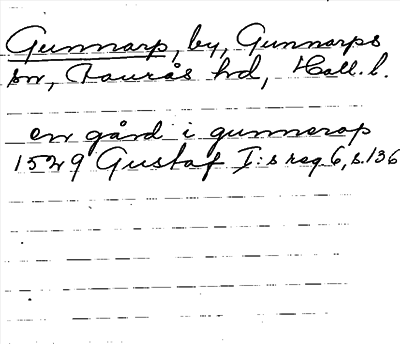 Gunnarp, by, Gunnarps
sn, Faurås hd, Hall. l.
en gård i gunnerop
1529 Gustaf I:s reg 6, s. 136